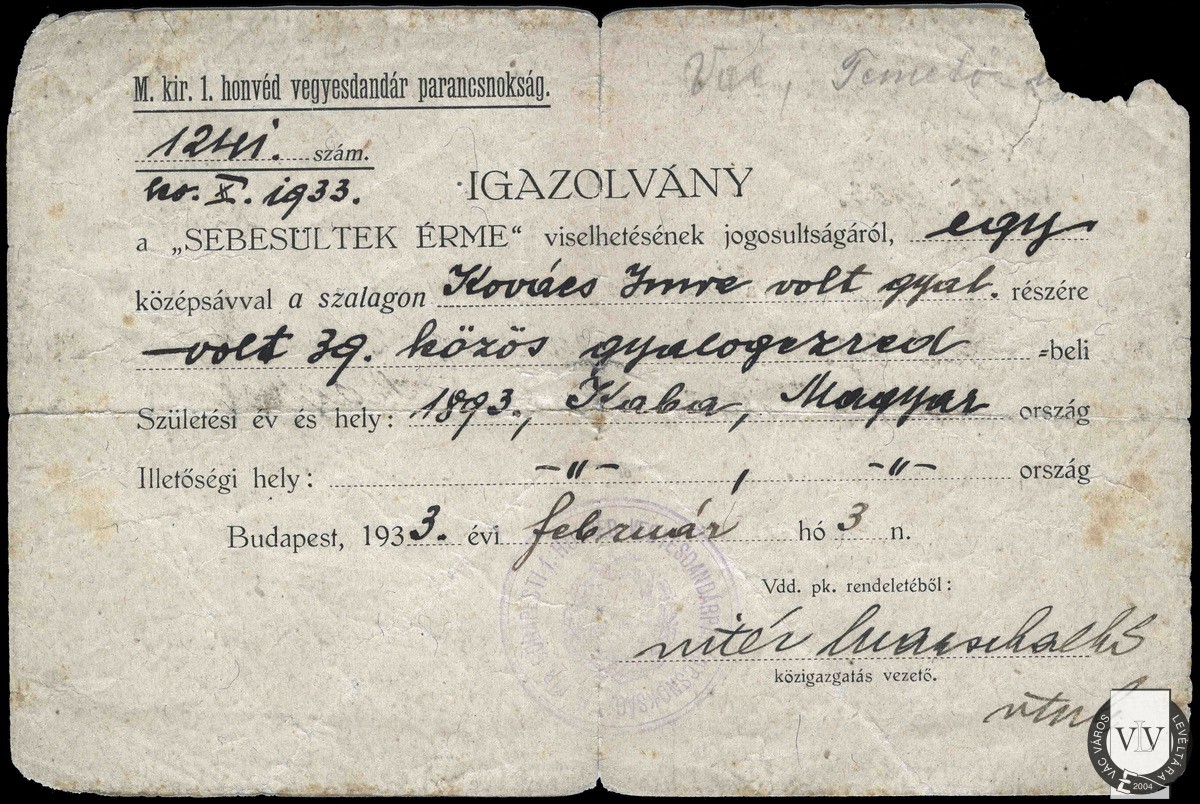 M. kir. 1. honvéd vegyesdandár parancsnokság.
Vác, Temető
1241. szám.
X. 1933.
IGAZOLVÁNY
a „SEBESÜLTEK ÉRME“ viselhetésének jogosultságáról, egy
középsávval a szalagon Kovács Imre volt gyal. részére
volt 39. közös gyalogezred =beli
Születési év és hely: 1893., Kaba, Magyar ország
Illetőségi hely: -„- , -„- ország
Budapest, 1933. évi február hó 3 n.
Vdd. pk. rendeletéből:
vitéz
közigazgatás vezető.
VÁC VÁROS LEVÉLTÁRA
VLV
2004